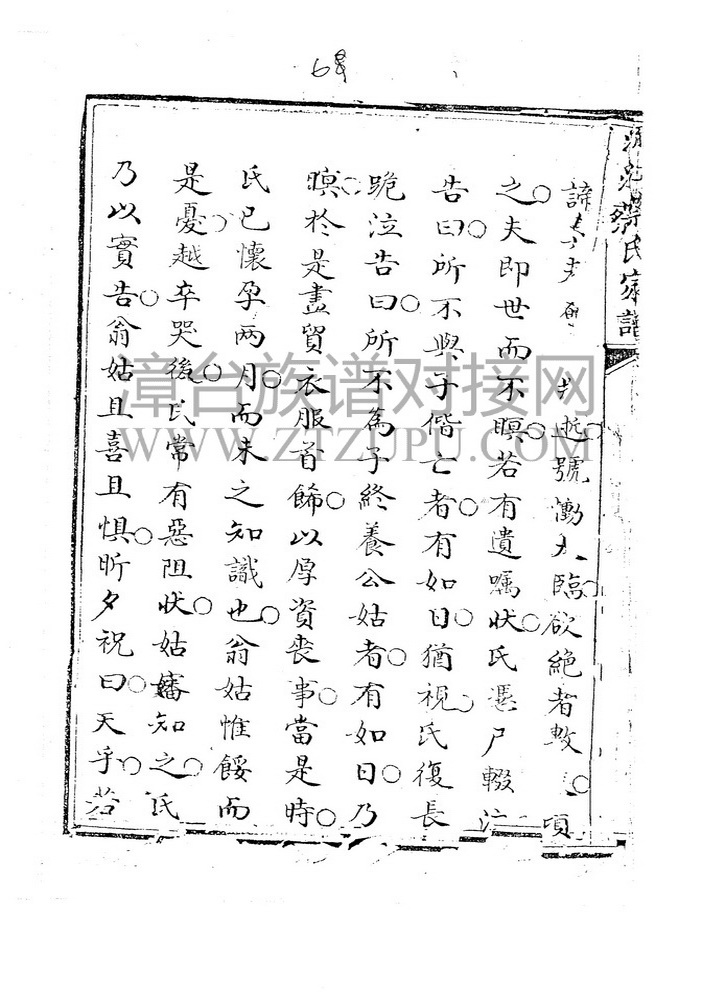 68
蔡氏家譜
逝號慟大臨欲絕者數頃
之夫即世而不瞑若有遺囑狀氏憑尸輟泣
告曰所不與子偕亡者有如日猶視氏復長
跪泣告曰所不為子終養公姑者有如日乃
瞑於是盡貿衣服首餙以厚資喪事當是時
氏已懷孕兩月而未之知識也翁姑惟餒而
是憂越卒哭後氏常有惡阻狀姑審知之氏
乃以實告翁姑且喜且惧昕夕祝曰天乎若
漳台族谱对接网
WWW.ZTZUPU.COM